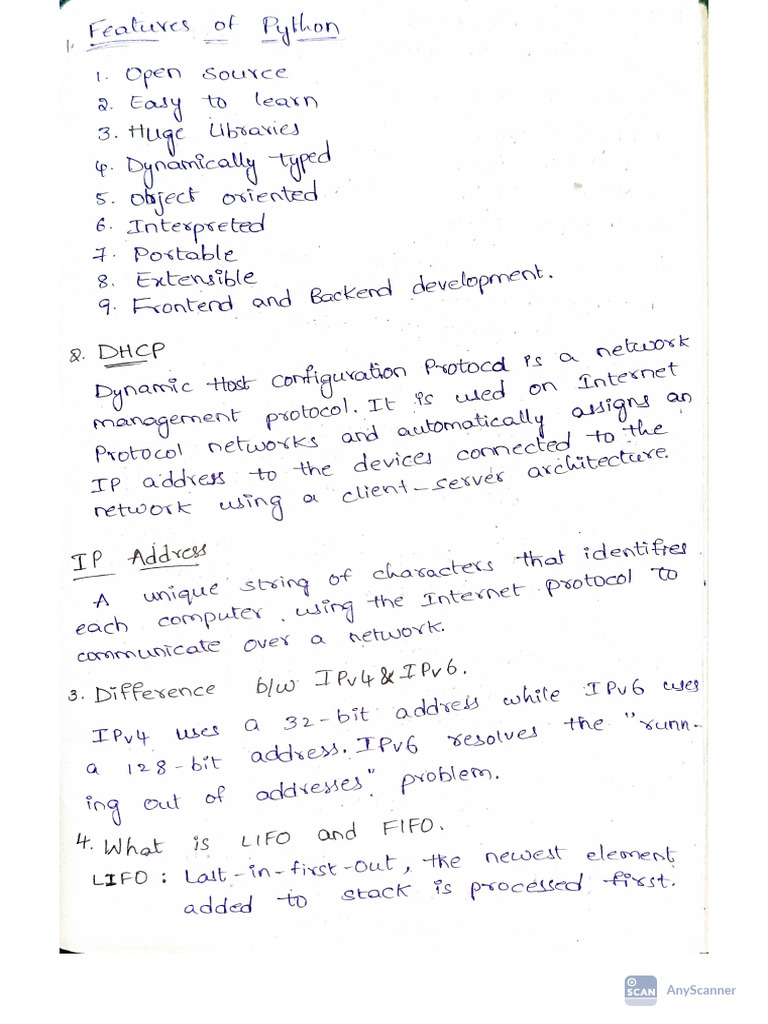 1. Features of Python
1. Open Source
2. Easy to learn
3. Huge Libraries
4. Dynamically typed
5. Object oriented
6. Interpreted
7. Portable
8. Extensible
9. Frontend and Backend development.
2. DHCP
Dynamic Host Configuration Protocol is a network
management protocol. It is used on Internet
Protocol networks and automatically assigns an
IP address to the devices connected to the
network using a client-server architecture.
IP Address
A unique string of characters that identifies
each computer using the Internet Protocol to
communicate over a network.
3. Difference b/w IPv4 & IPv6.
IPv4 uses a 32-bit address while IPv6 uses
a 128-bit address. IPv6 resolves the "runn-
ing out of addresses" problem.
4. What is LIFO and FIFO.
LIFO : Last-in-first-out, the newest element
added to stack is processed first.
SCAN AnyScanner